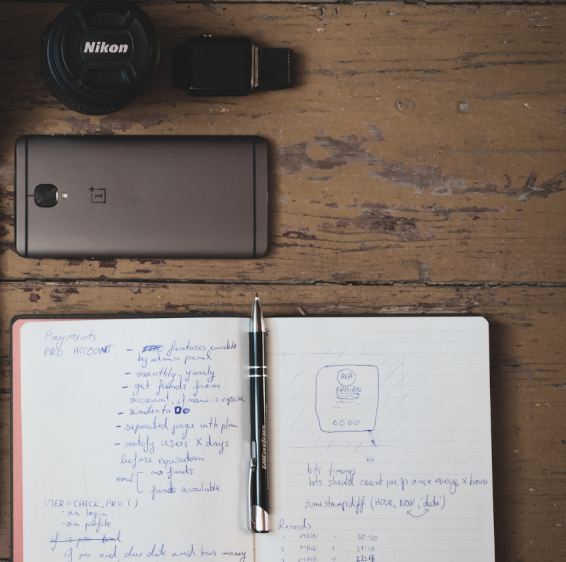 Nikon
Payments
PRO ACCOUNT - features enable
by admin panel
- monthly, yearly
- get funds from
account, if name is
- similar to DO
- separated page with plan
- notify users X days
before expiration
no funds
funds available
USER = CHECK_PRO ( )
- on login
- on profile
if pro and due date and has money
FABIAN
hits timeups
hits should count per ip once every x hours
timestampdiff (HOUR, NOW, 'date')
Records
1 MAIN 20:20
2 MAIN 21:10
3 MAIN